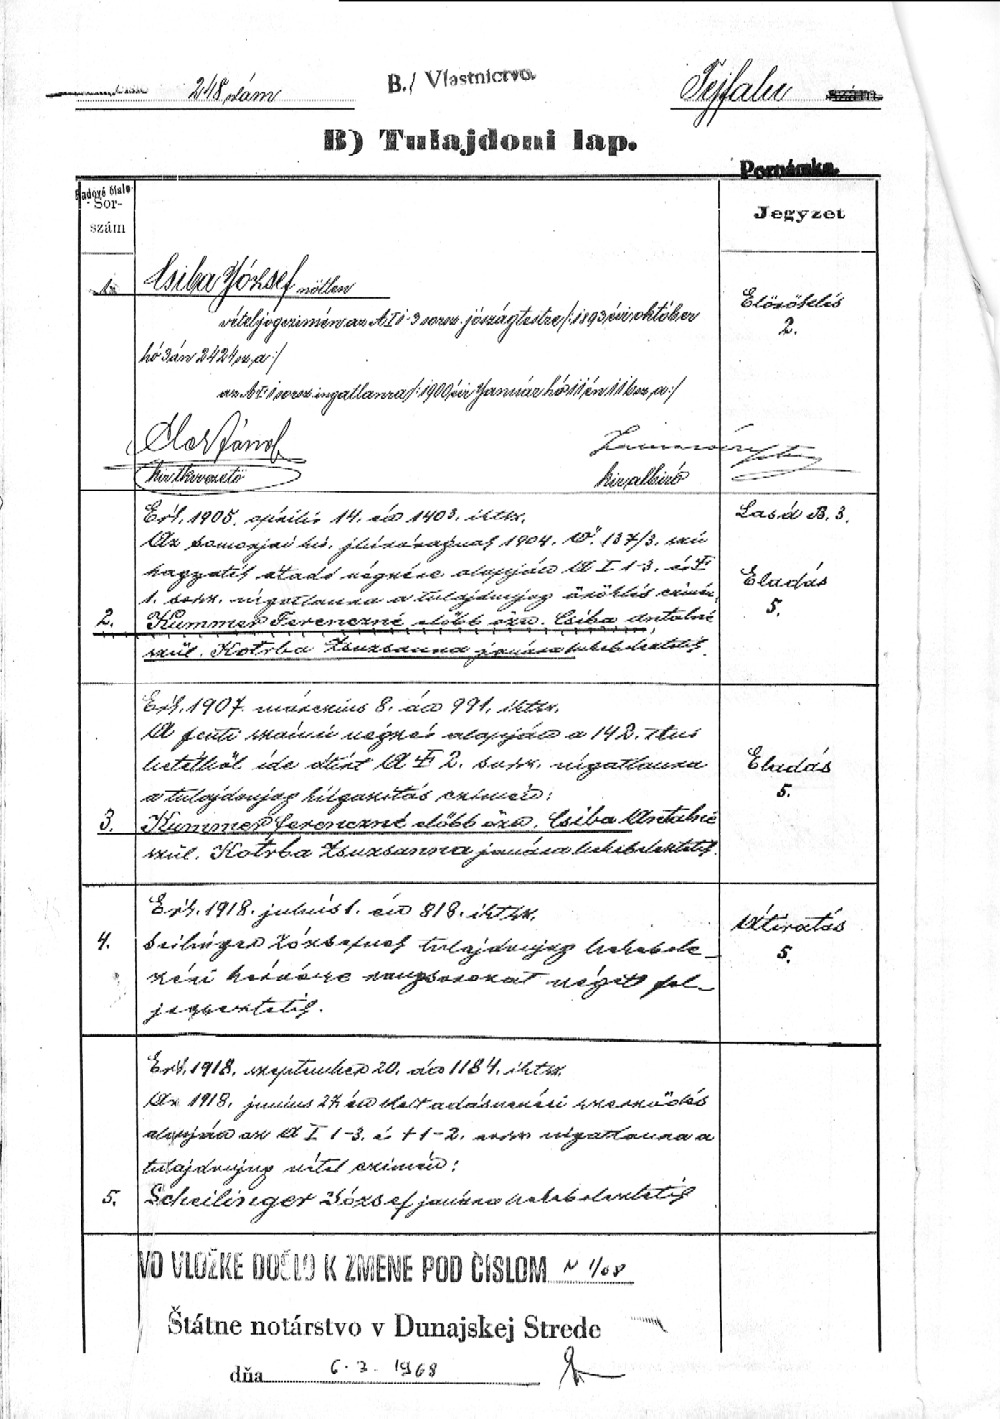 248 szám
B./ Vlastníctvo.
Tejfalu
B) Tulajdoni lap.
Poznámka.
Radové číslo
Sor-
szám
Jegyzet
1.
Csiba József nőtlen
vétel jogczimén az A I 1-3 sorsz. jószágtestre /:1893 évi október
hó 3án 2424 sz. a:/
az A † 1 sorsz. ingatlanra /:1900 évi Január hó 11én 11 bsz. a:/
János
kir. tkvvezető
kir. albiró
Előröklés
2.
Érk. 1905. április 14. én 1403. iktsz.
Az somorjai kir. jbíróságnak 1904. Ö. 137/3. szú
hagyaték átadó végzése alapján A I 1-3. és †
1. sorsz. ingatlanra a tulajdonjog öröklés czimén
2. Kummer Ferenczné előbb özv. Csiba Antalné
szül. Kotrba Zsuzsanna javára bekebeleztetik.
Lásd B. 3.
Eladás
5.
Érk. 1907. március 8. án 991. iktsz.
A fenti számú végzés alapján a 142. sz.
betétből ide átvitt A † 2. sorsz. ingatlanra
a tulajdonjog kiigazitás czimén:
3. Kummer Ferenczné előbb özv. Csiba Antalné
szül. Kotrba Zsuzsanna javára bekebeleztetik.
Eladás
5.
Érk. 1918. julius 1. én 818. iktsz.
4. Seilinger Józsefnek tulajdonjog bekebele-
zési kérvénye rangsorozat végett fel-
jegyeztetik.
Átiratás
5.
Érk. 1918. szeptember 20. án 1184. iktsz.
Az 1918. junius 27 én kelt adásvevési szerződés
alapján az A I 1-3. és † 1-2. sorsz. ingatlanra a
tulajdonjog vétel czimén:
5. Scheilinger József javára bekebeleztetik
VO VLOŽKE DOŠLO K ZMENE POD ČÍSLOM N 1/68
Štátne notárstvo v Dunajskej Strede
dňa 6. 3. 1968